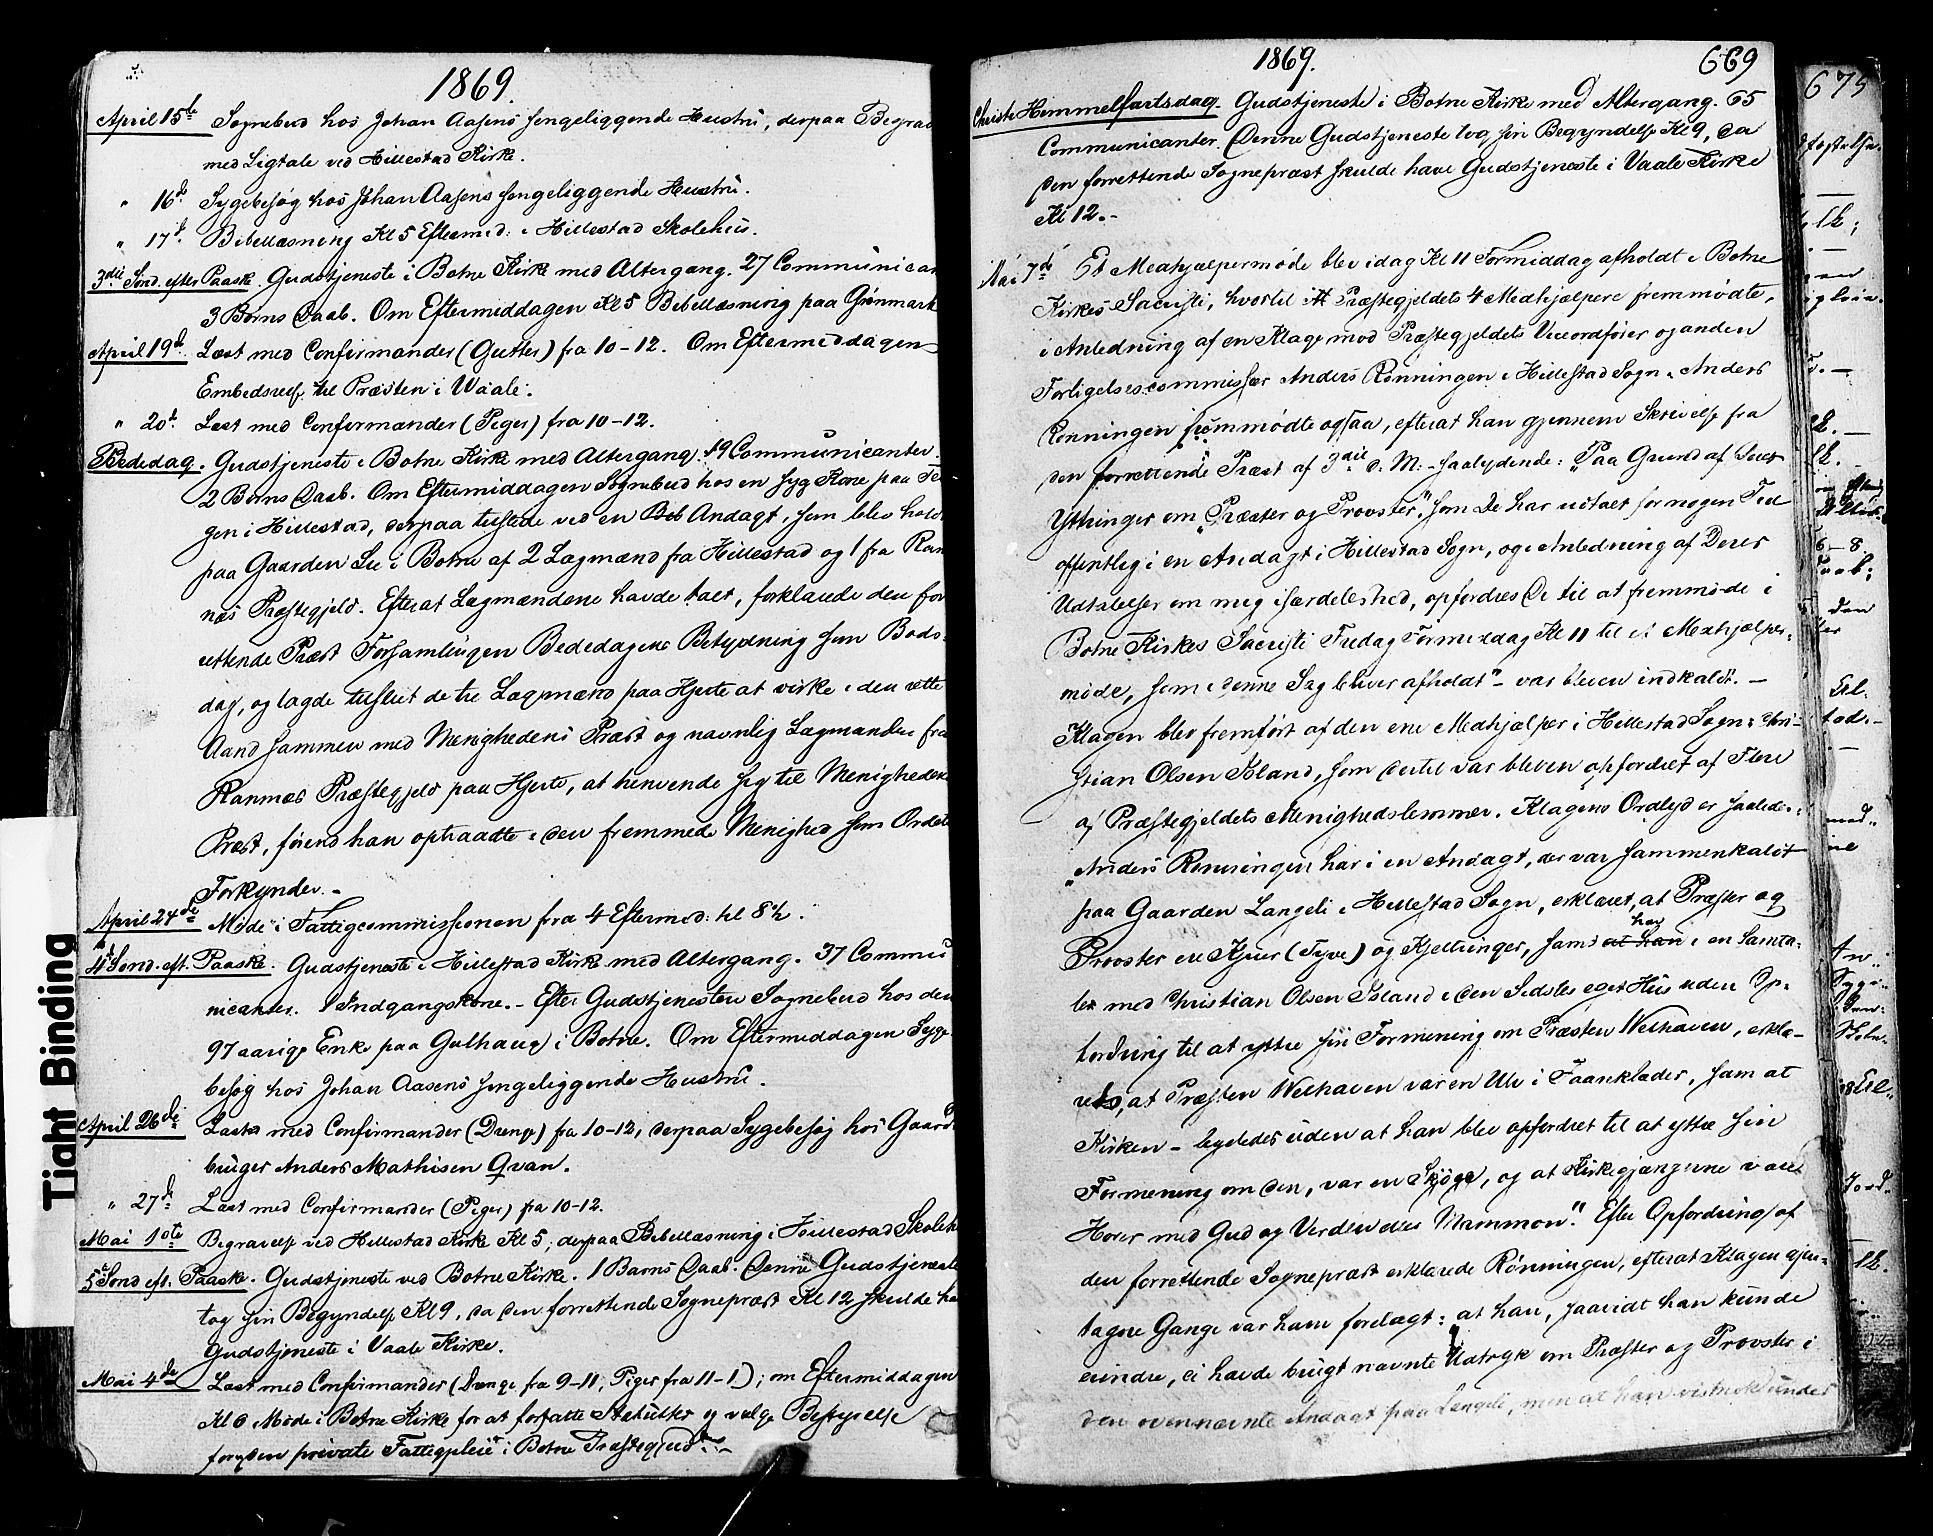 1869.
April 15de Sognebud hos Johan Aasens sengeliggende Hustru, derpaa Begrav
med Ligtale ved Hillestad Kirke.
" 16de Sygebesøg hos Johan Aasens sengeliggende Hustru.
" 17de Bibellæsning Kl 5 Eftermd: i Hillestad Skolehus.
3die Sønd. efter Paaske. Gudstjeneste i Botne Kirke med Altergang. 27 Communican
3 Børns Daab. Om Eftermiddagen Kl 5 Bibellæsning paa Grønmark
April 19de Læst med Confirmander (Gutter) fra 10-12. Om Eftermiddagen
Embedsreise til Præsten i Vaale.
" 20de Læst med Confirmander (Piger) fra 10-12.
Bededag. Gudstjeneste i Botne Kirke med Altergang. 19 Communicanter.
2 Børns Daab. Om Eftermiddagen Sognebud hos en syg Kone paa
gen i Hillestad, derpaa tilstede ved en Andagt, som blev hold
paa Gaarden Lie i Botne af 2 Lægmænd fra Hillestad og 1 fra Ram
næs Præstegjeld. Efterat Lægmændene havde talt, forklarede den for
rettende Præst Forsamlingen Bededagens Betydning som Bods-
dag, og lagde tilsidst de tre Lægmænd paa Hjerte at virke i den rette
Aand sammen med Menighedens Præst og navnlig Lægmanden fra
Ramnæs Præstegjeld paa Hjerte, at henvende sig til Menighedens
Præst, førend han optraadte i den fremmede Menighed som Ordets
Forkynder. -
April 24de Møde i Fattigcommissionen fra 4 Eftermd: til 8½.
4de Sønd. eft. Paaske. Gudstjeneste i Hillestad Kirke med Altergang. 37 Commu
nicanter. 1 Indgangskone. - Efter Gudstjenesten Sognebud hos den
97 aarige Enke paa Gulhaug i Botne. Om Eftermiddagen Syge
besøg hos Johan Aasens sengeliggende Hustru.
April 26de Læst med Confirmander (Drenge) fra 10-12, derpaa Sygebesøg hos Gaard
bruger Anders Mathisen Qvan.
" 27de Læst med Confirmander (Piger) fra 10-12.
Mai 1ste Begravelse ved Hillestad Kirke Kl 5, derpaa Bibellæsning i Hillestad Skoleh
5te Sønd eft. Paaske. Gudstjeneste ved Botne Kirke. 1 Barns Daab. Denne Gudstjeneste
tog sin Begyndelse Kl 9, da den forrettende Sognepræst Kl 12 skulde ha
Gudstjeneste i Vaale Kirke.
Mai 4de Læst med Confirmander (Drenge fra 9-11, Piger fra 11-1); om Eftermiddagen
Kl 6 Møde i Botne Kirke for at forfatte Statutter og vælge Bestyrelse
for den private Fattigpleie i Botne Præstegjeld. -
1869. 669
Christi Himmelfartsdag. Gudstjeneste i Botne Kirke med Altergang. 65
Communicanter. (Denne Gudstjeneste tog sin Begyndelse Kl 9, da
den forrettende Sognepræst skulde have Gudstjeneste i Vaale Kirke
Kl 12. -
Mai 7de Et Medhjælpermøde blev idag Kl 11 Formiddag afholdt i Botne
Kirkes Sacristi, hvortil Præstegjeldets 4 Medhjælpere fremmødte,
i Anledning af en Klage mod Præstegjeldets Viceordfører og anden
Forligelsescommissær Anders Rønningen i Hillestad Sogn. Anders
Rønningen fremmødte ogsaa, efterat han gjennem Skrivelse fra
den forrettende Præst af 3die d. M. - saalydende: "Paa Grund af Deres
Yttringer om "Præster og Provster", som De har udtalt for nogen Tid
offentlig i en Andagt i Hillestad Sogn, og i Anledning af Deres
Udtalelser om mig isærdeleshed, opfordres De til at fremmøde i
Botne Kirkes Sacristi Fredag Formiddag Kl 11 til et Medhjælper-
møde, som i denne Sag bliver afholdt" - var bleven indkaldt. -
Klagen blev fremført af den ene Medhjælper i Hillestad Sogn: Chri-
stian Olsen Island, som dertil var bleven opfordret af Flere
af Præstegjeldets Menighedslemmer. Klagens Ordlyd er saalede.:
"Anders Rønningen har i en Andagt, der var sammenkaldt
paa Gaarden Langeli i Hillestad Sogn, erklæret, at Præster og
Provster ere Tjuve (Tyve) og Kjeltringer, samt at han har i en Samta-
le med Christian Olsen Island i den Sidstes eget Hus uden Op-
fordring til at yttre sin Formening om Præsten Welhaven, erklæ-
ret, at Præsten Welhaven var en Ulv i Faareklæder, samt at
Kirken - ligeledes uden at han blev opfordret til at yttre sin
Formening om den, var en Skjøge, og at Kirkegjængerne vare
Horer med Gud og Verden dvs Mammon". Efter Opfordring af
den forrettende Sognepræst erklærede Rønningen, efterat Klagen gjen-
tagne Gange var ham forelagt: at han, saavidt han kunde
erindre, ei havde brugt nævnte Udtryk om Præster og Provster i
den ovennævnte Andagt paa Langeli, men at han vistnok under
675
Tight Binding